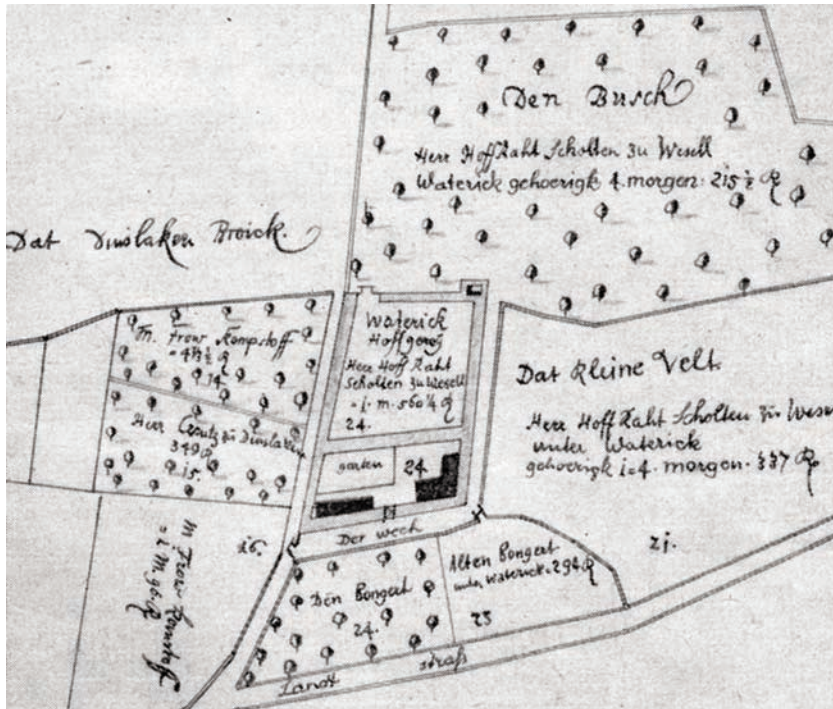 Den Busch
Herr Hoff Raht Scholten zu Wesell
Waterick gehoerigk 4. morgen: 215 ½ R
Dat Dinslaken Broick.
M. frow
14.
Herr zu Dinslaken
349 R
15.
Waterick
Hoff
Herr Hoff Raht
Scholten zu Wesell
= j. m. 560 ¼ R
24.
garten
24
Dat Kleine Velt.
Herr Hoff Raht Scholten zu Wese
unter Waterick
gehoerigk morgen. 337 R
21.
M frow
= 1 M. 96. R
16.
Der wech
Den Bongert
24.
Alten Bongert
unter Waterick. 294 R
23
Landt straß